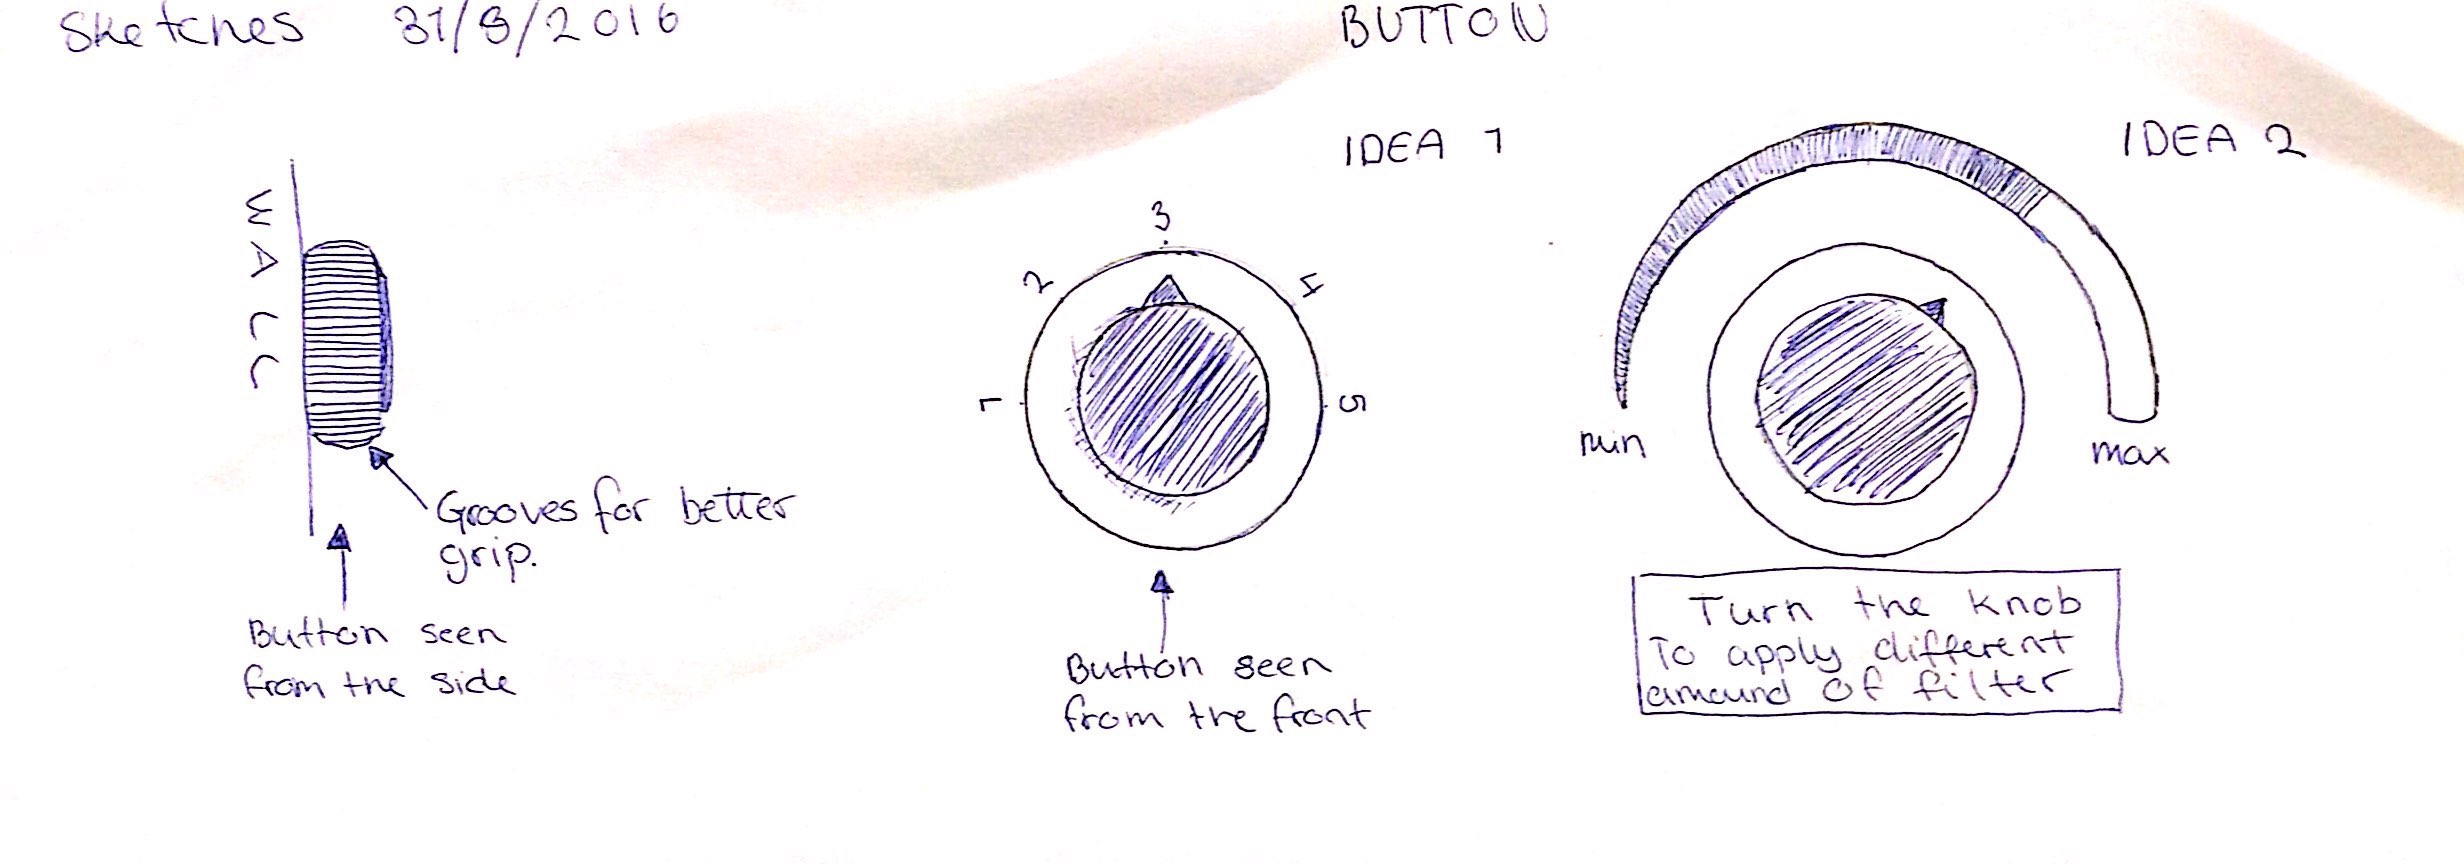 Sketches 31/8/2016
BUTTON
IDEA 1
IDEA 2
WALL
3
2
4
1
5
min
max
Grooves for better
grip.
Button seen
from the side
Button seen
from the front
Turn the knob
To apply different
amound of filter